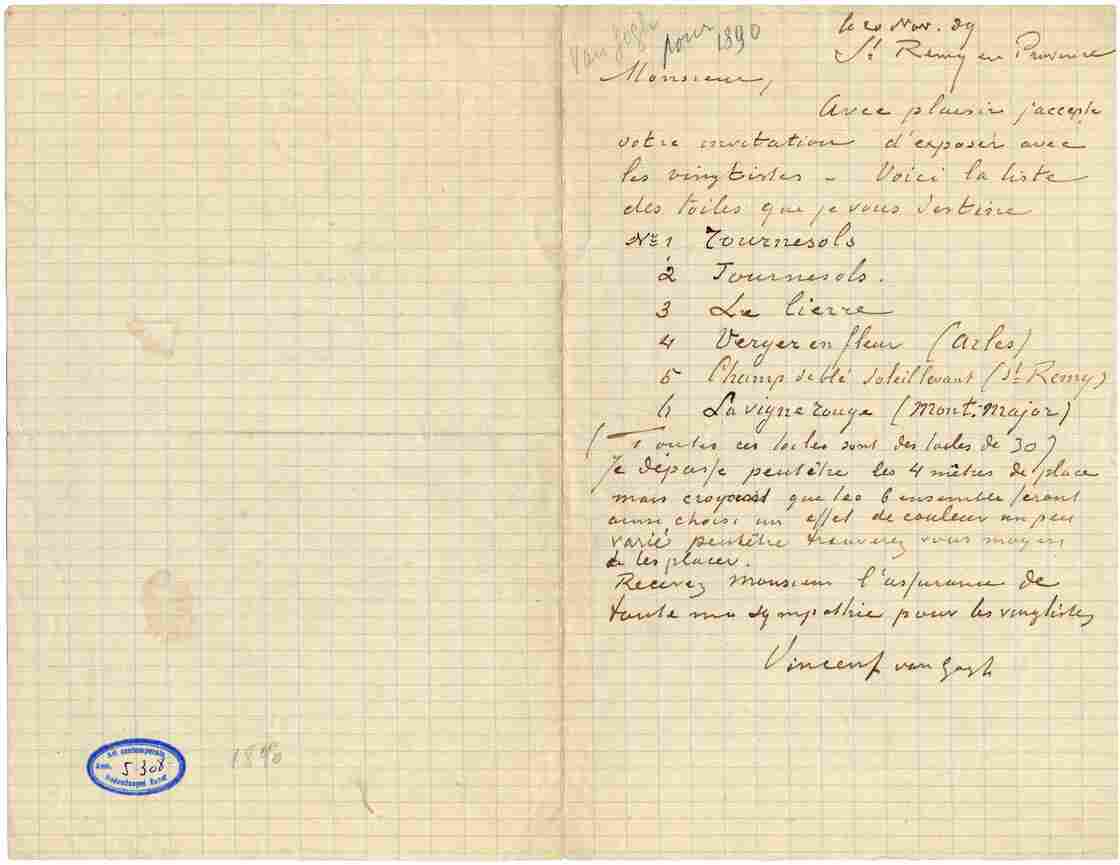 van Gogh pour 1890
le 20 Nov. 89
St Remy en Provence
Monsieur,
Avec plaisir j'accepte
votre invitation d'exposer avec
les vingtistes – Voici la liste
des toiles que je vous destine
No 1 Tournesols
2 Tournesols.
3 Le lierre
4 Verger en fleur (Arles)
5 Champ de blé soleil levant (St Remy)
6 La vigne rouge (Mont-Major)
(Toutes ces toiles sont des toiles de 30)
Je dépasse peutêtre les 4 mêtres de place
mais croyant que les 6 ensemble feront
ainsi choisi un effet de couleur un peu
varié peutêtre trouverez vous moyen
de les placer.
Recevez monsieur l'assurance de
toute ma sympathie pour les vingtistes
Vincent van Gogh
Art contemporain
5308
Hedendaagse Kunst
1890